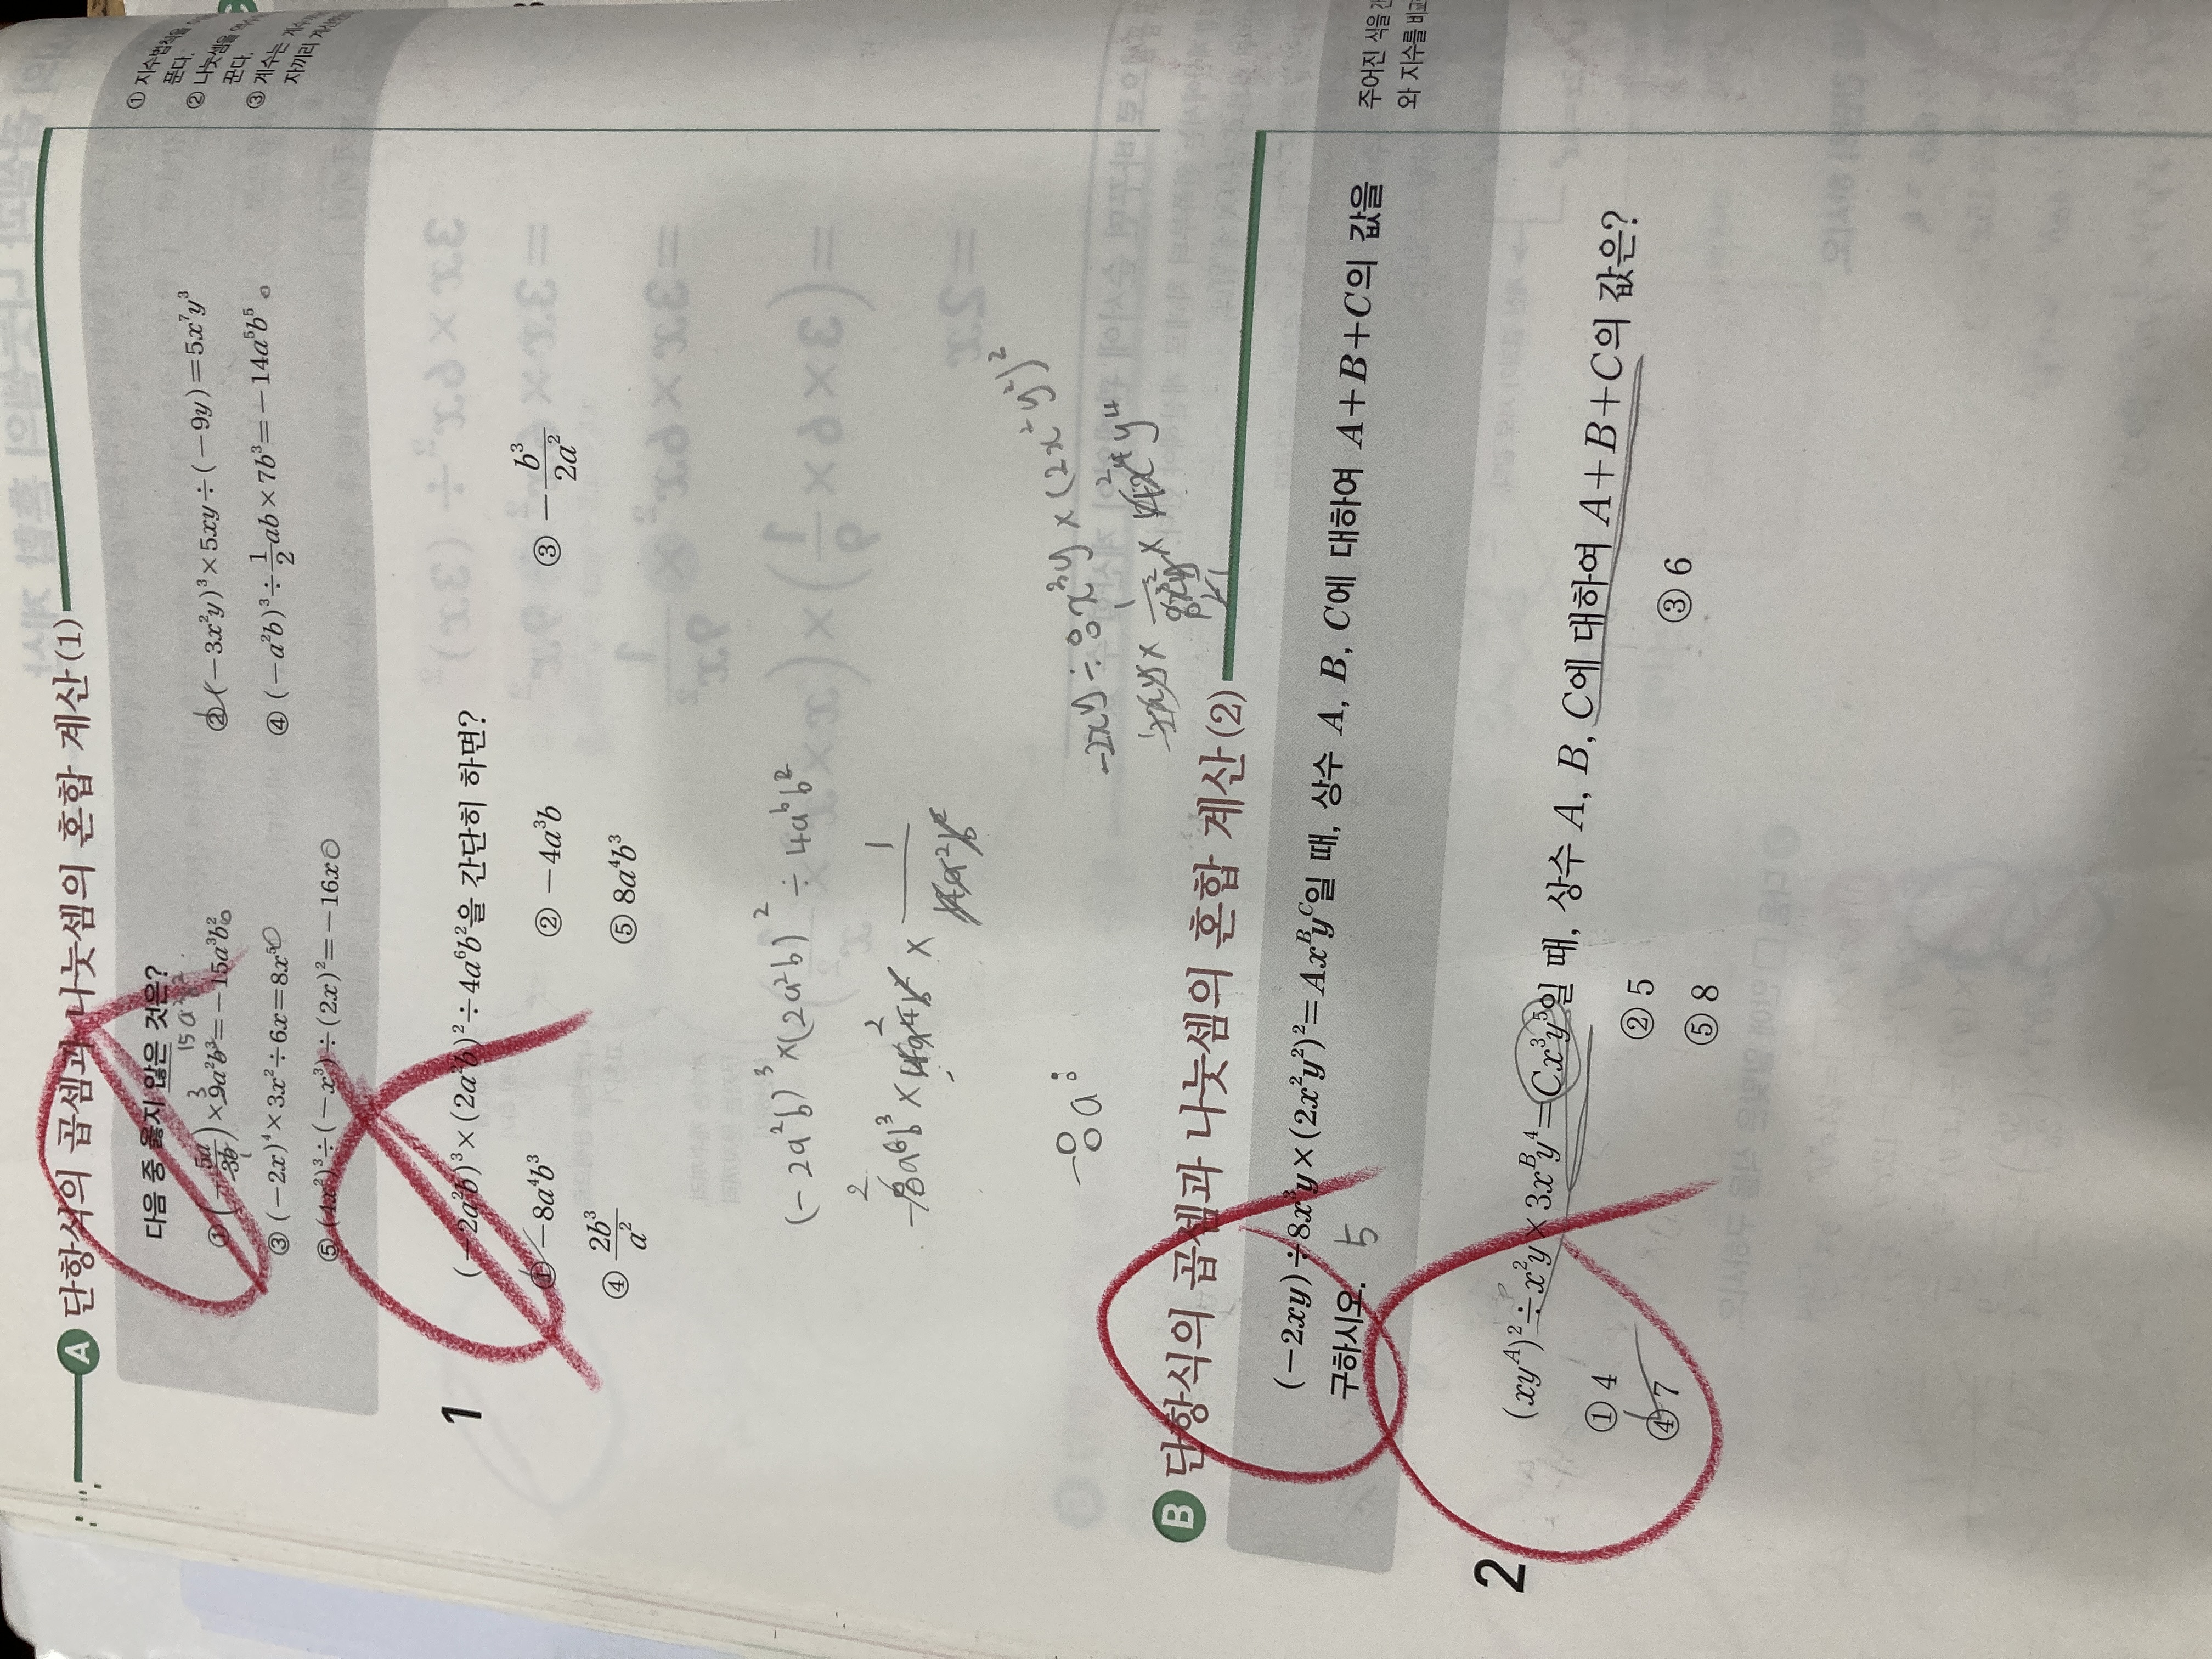 A 단항식의 곱셈과 나눗셈의 혼합 계산(1)
다음 중 옳지 않은 것은?
15a
① (-5a/3b)×9a²b³=-15a³b²
② (-3x²y)³×5xy÷(-9y)=5x⁷y³
③ (-2x)⁴×3x²÷6x=8x⁵
④ (-a²b)³÷1/2ab×7b³=-14a⁵b⁵
⑤ (4x²)³÷(-x³)÷(2x)²=-16x
① 지수법칙을
푼다.
② 나눗셈을
꾼다.
③ 계수는
자끼리
1
(-2a²b)³×(2a²b)²÷4a⁶b²을 간단히 하면?
① -8a⁴b³
② -4a³b
③ -b³/2a²
④ 2b³/a²
⑤ 8a⁴b³
(-2a²b)³×(2a²b)²÷4a⁶b²
-8a
-2xy÷8x³y×(2x²y²)²
B 단항식의 곱셈과 나눗셈의 혼합 계산(2)
(-2xy)÷8x³y×(2x²y²)²=Ax^By^C일 때, 상수 A, B, C에 대하여 A+B+C의 값을
구하시오. 5
주어진 식을
와 지수를
2
(xy^A)²÷x²y×3x^By⁴=Cx³y⁵일 때, 상수 A, B, C에 대하여 A+B+C의 값은?
① 4
② 5
③ 6
④ 7
⑤ 8